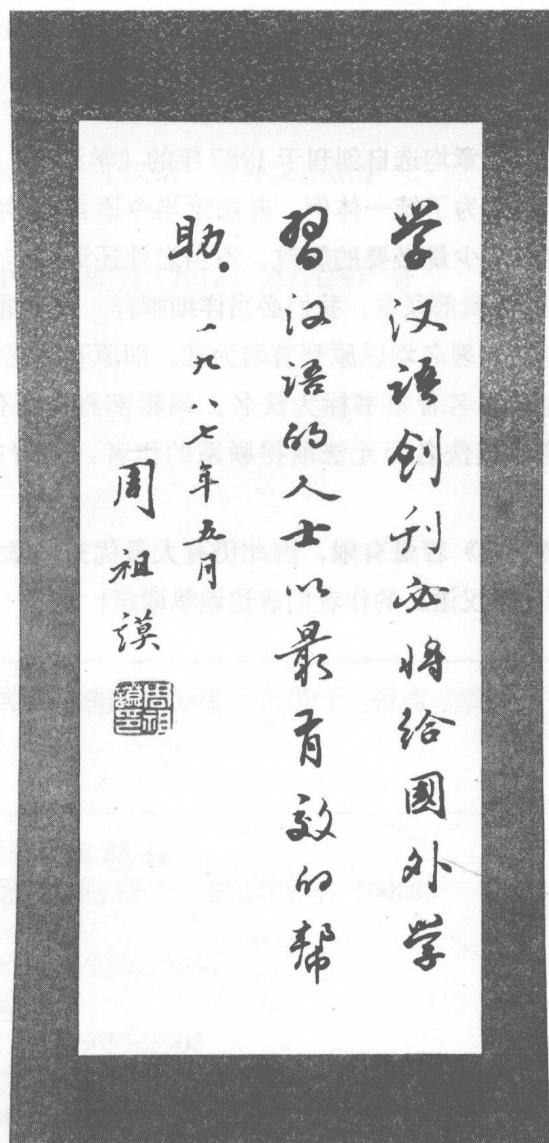 学汉语创刊必将给國外学
習汉语的人士以最有效的帮
助。
一九八七年五月
周祖谟
周祖谟印